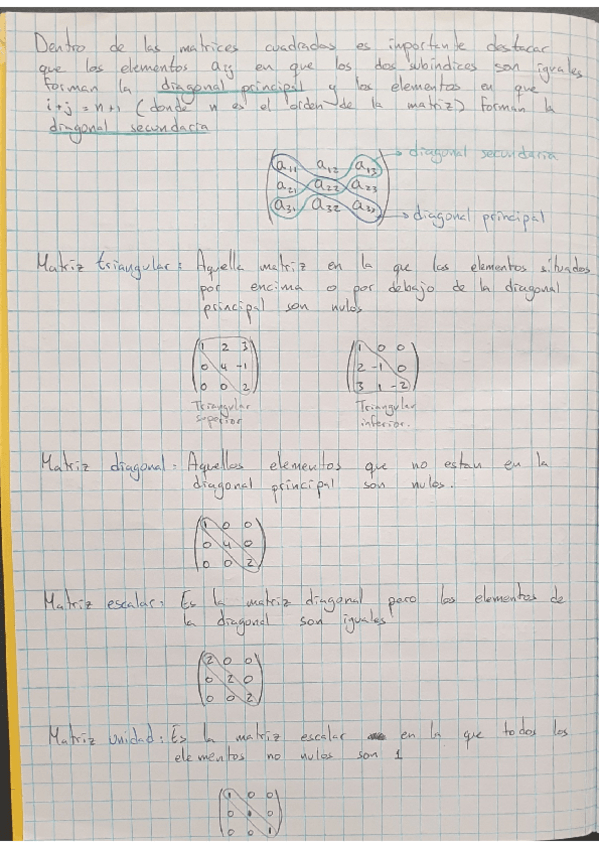 Dentro de las matrices cuadradas es importante destacar
que los elementos aij en que los dos subíndices son iguales
forman la diagonal principal y los elementos en que
i+j = n+1 (donde n es el orden de la matriz) forman la
diagonal secundaria
a11 a12 a13 → diagonal secundaria
a21 a22 a23
a31 a32 a33 → diagonal principal
Matriz triangular: Aquella matriz en la que los elementos situados
por encima o por debajo de la diagonal
principal son nulos
1 2 3    1 0 0
0 4 -1    2 -1 0
0 0 2    3 1 -2
Triangular    Triangular
superior    inferior.
Matriz diagonal: Aquellos elementos que no estan en la
diagonal principal son nulos.
1 0 0
0 4 0
0 0 2
Matriz escalar: Es la matriz diagonal pero los elementos de
la diagonal son iguales
2 0 0
0 2 0
0 0 2
Matriz unidad: Es la matriz escalar en la que todos los
elementos no nulos son 1
1 0 0
0 1 0
0 0 1